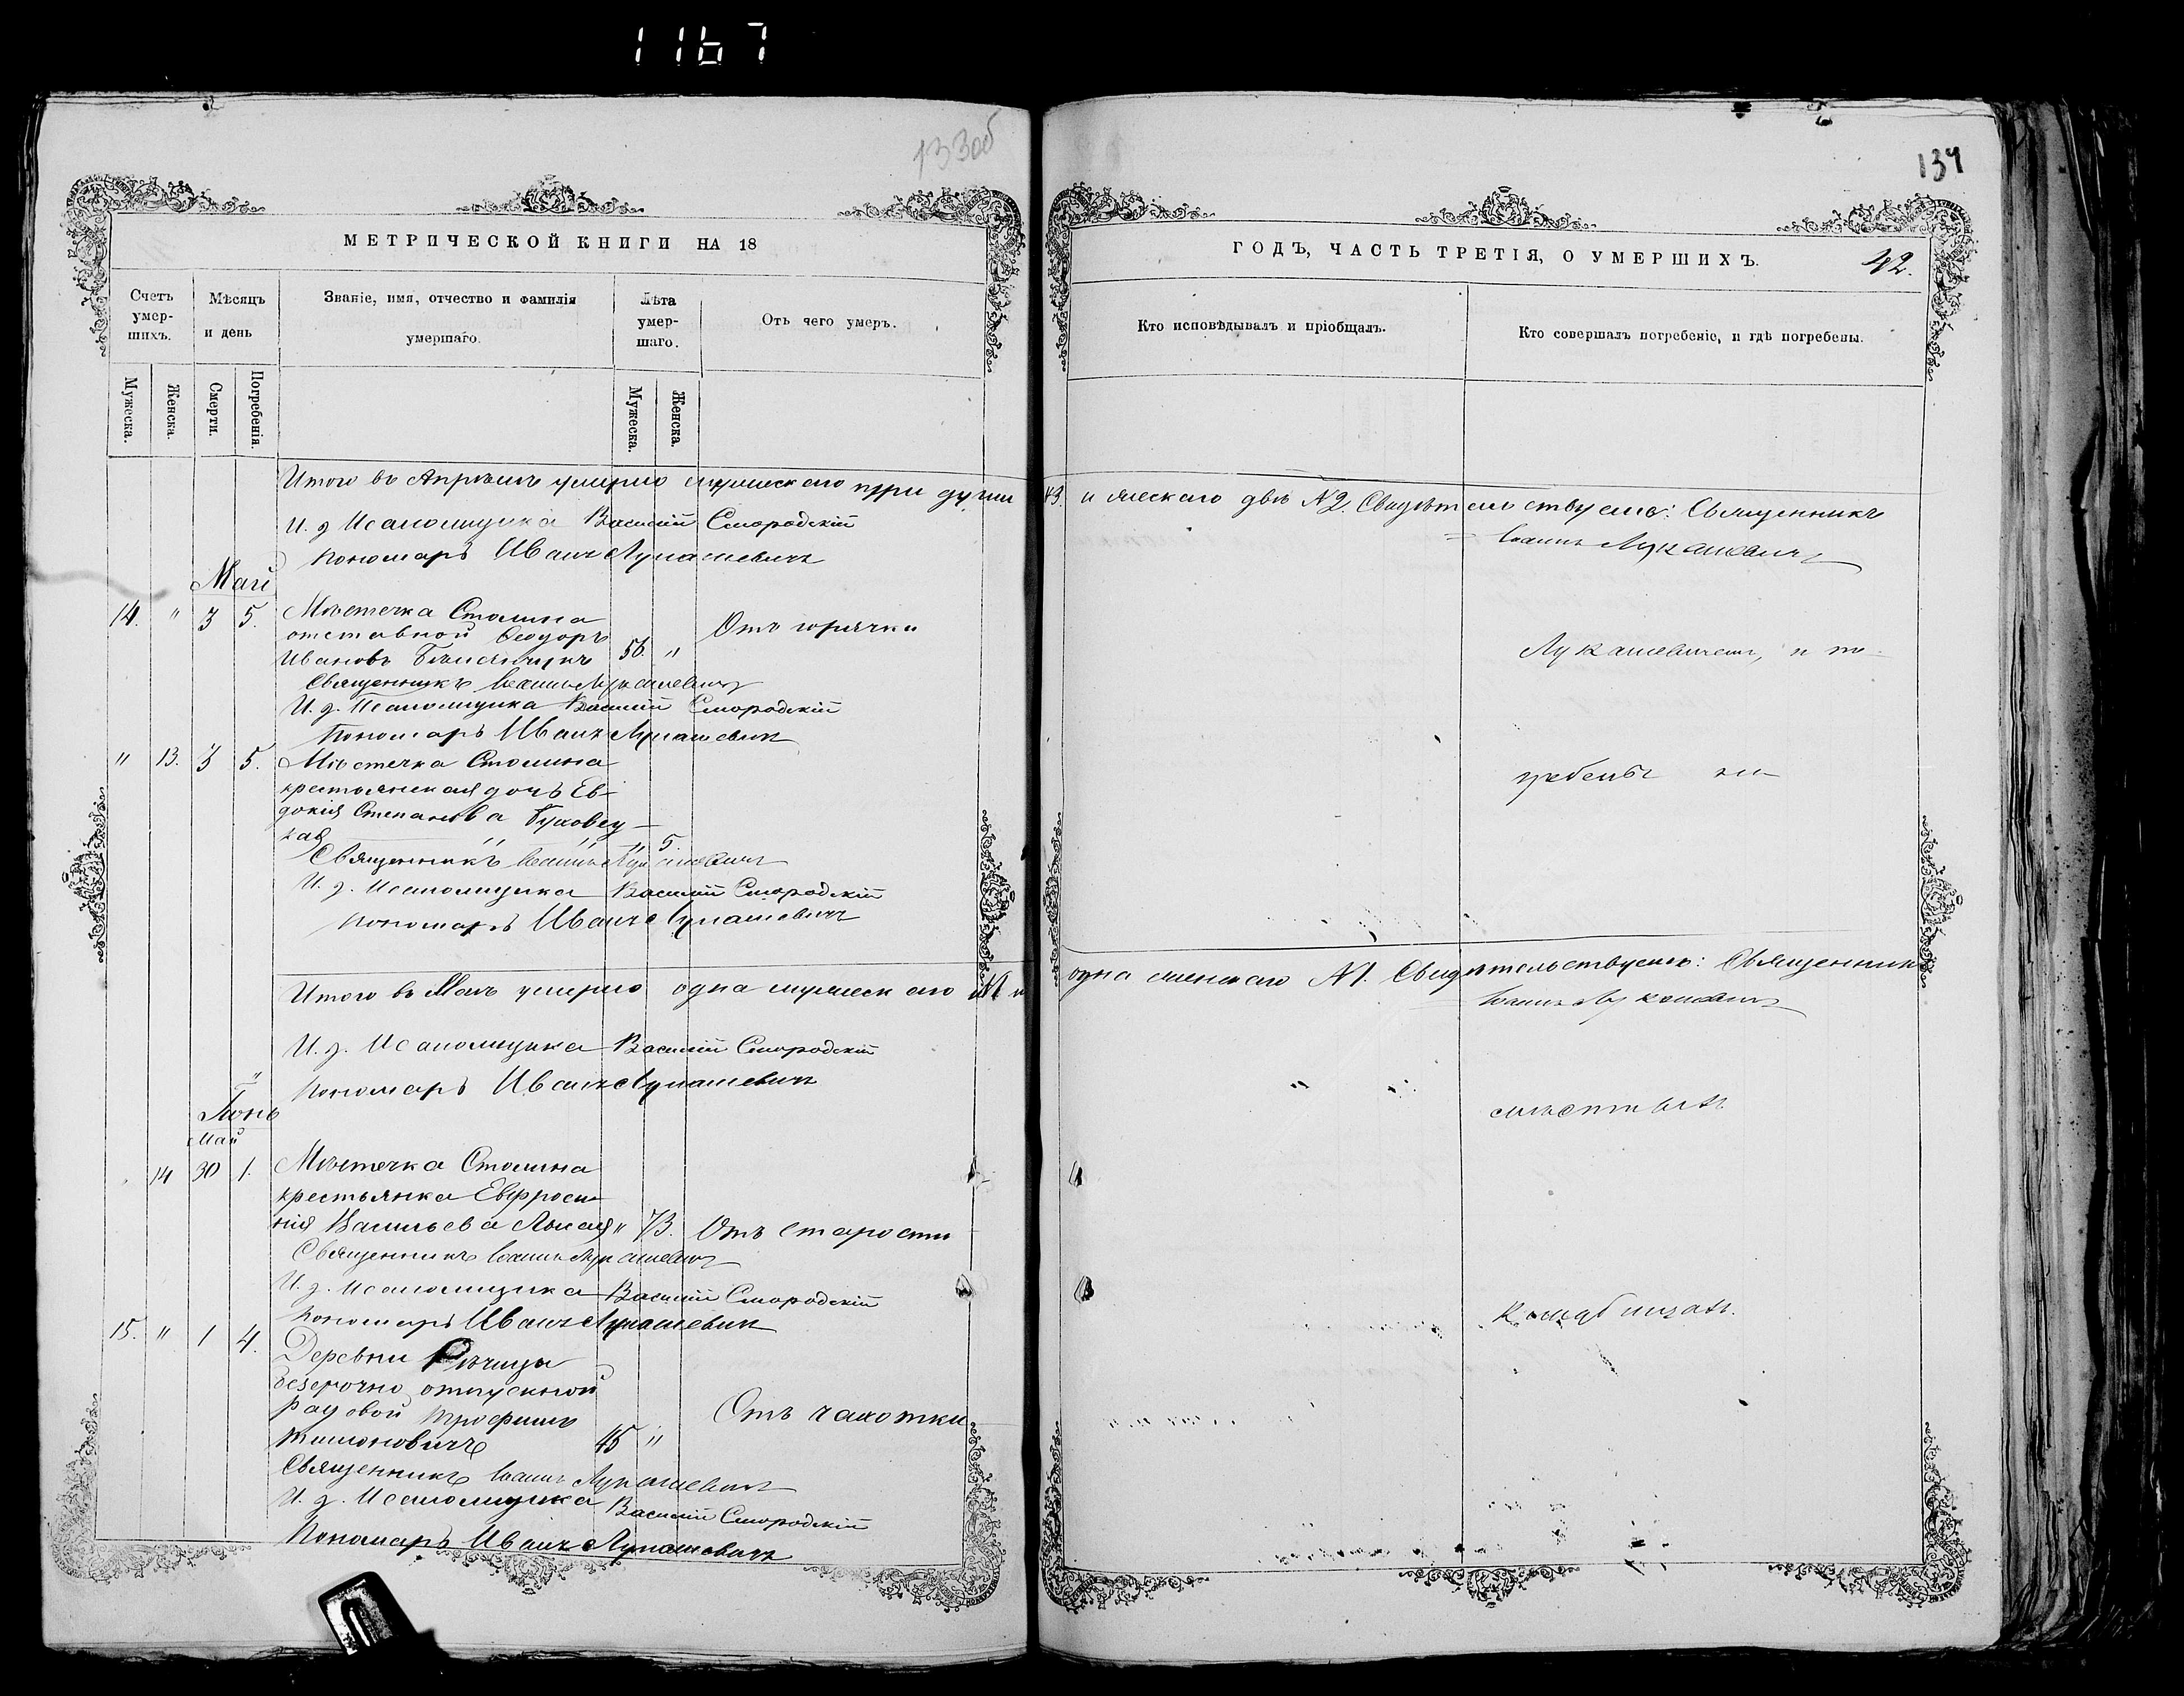 1167
133об
134
МЕТРИЧЕСКОЙ КНИГИ НА 18
ГОДЪ, ЧАСТЬ ТРЕТІЯ, О УМЕРШИХЪ.
42.
Счетъ умершихъ.
Мѣсяцъ и день
Званіе, имя, отчество и фамилія умершаго.
Лѣта умершаго.
Отъ чего умеръ.
Кто исповѣдывалъ и пріобщалъ.
Кто совершалъ погребеніе, и гдѣ погребены.
Мужеска.
Женска.
Смерти.
Погребенія.
Мужеска.
Женска.
Итого въ Апрѣлѣ умерло мужескаго три души №3. и женскаго двѣ №2. Свидѣтельствуемъ: Священникъ
Іоаннъ Лукашевичъ
И. д. Псаломщика Василій Смородскій
Пономарь Иванъ Лукашевичъ
Май
14. " 3 5. Мѣстечка Столина
отставной Ѳеодоръ
Ивановъ 56. " Отъ горячки
Священникъ Іоаннъ Лукашевичъ
И. д. Псаломщика Василій Смородскій
Пономарь Иванъ Лукашевичъ
" 13. 3 5. Мѣстечка Столина
крестьянская дочь Ев-
докія Степанова
" 5.
Священникъ Іоаннъ Лукашевичъ
И. д. Псаломщика Василій Смородскій
Пономарь Иванъ Лукашевичъ
Лукашевичемъ, и по-
гребены на
Итого въ Маѣ умерло одна мужескаго №1 и одна женскаго №1. Свидѣтельствуемъ: Священникъ
Іоаннъ Лукашевичъ
И. д. Псаломщика Василій Смородскій
Пономарь Иванъ Лукашевичъ
Іюнь
Май
14 30 1. Мѣстечка Столина
крестьянка Евфроси-
нія Васильева " 73. Отъ старости
Священникъ Іоаннъ Лукашевичъ
И. д. Псаломщика Василій Смородскій
Пономарь Иванъ Лукашевичъ
15. " 1 4. Деревни Рѣчицы
безсрочно отпускной
рядовой Трофимъ
45 " Отъ чахотки
Священникъ Іоаннъ Лукашевичъ
И. д. Псаломщика Василій Смородскій
Пономарь Иванъ Лукашевичъ
мѣстныхъ
кладбищахъ.